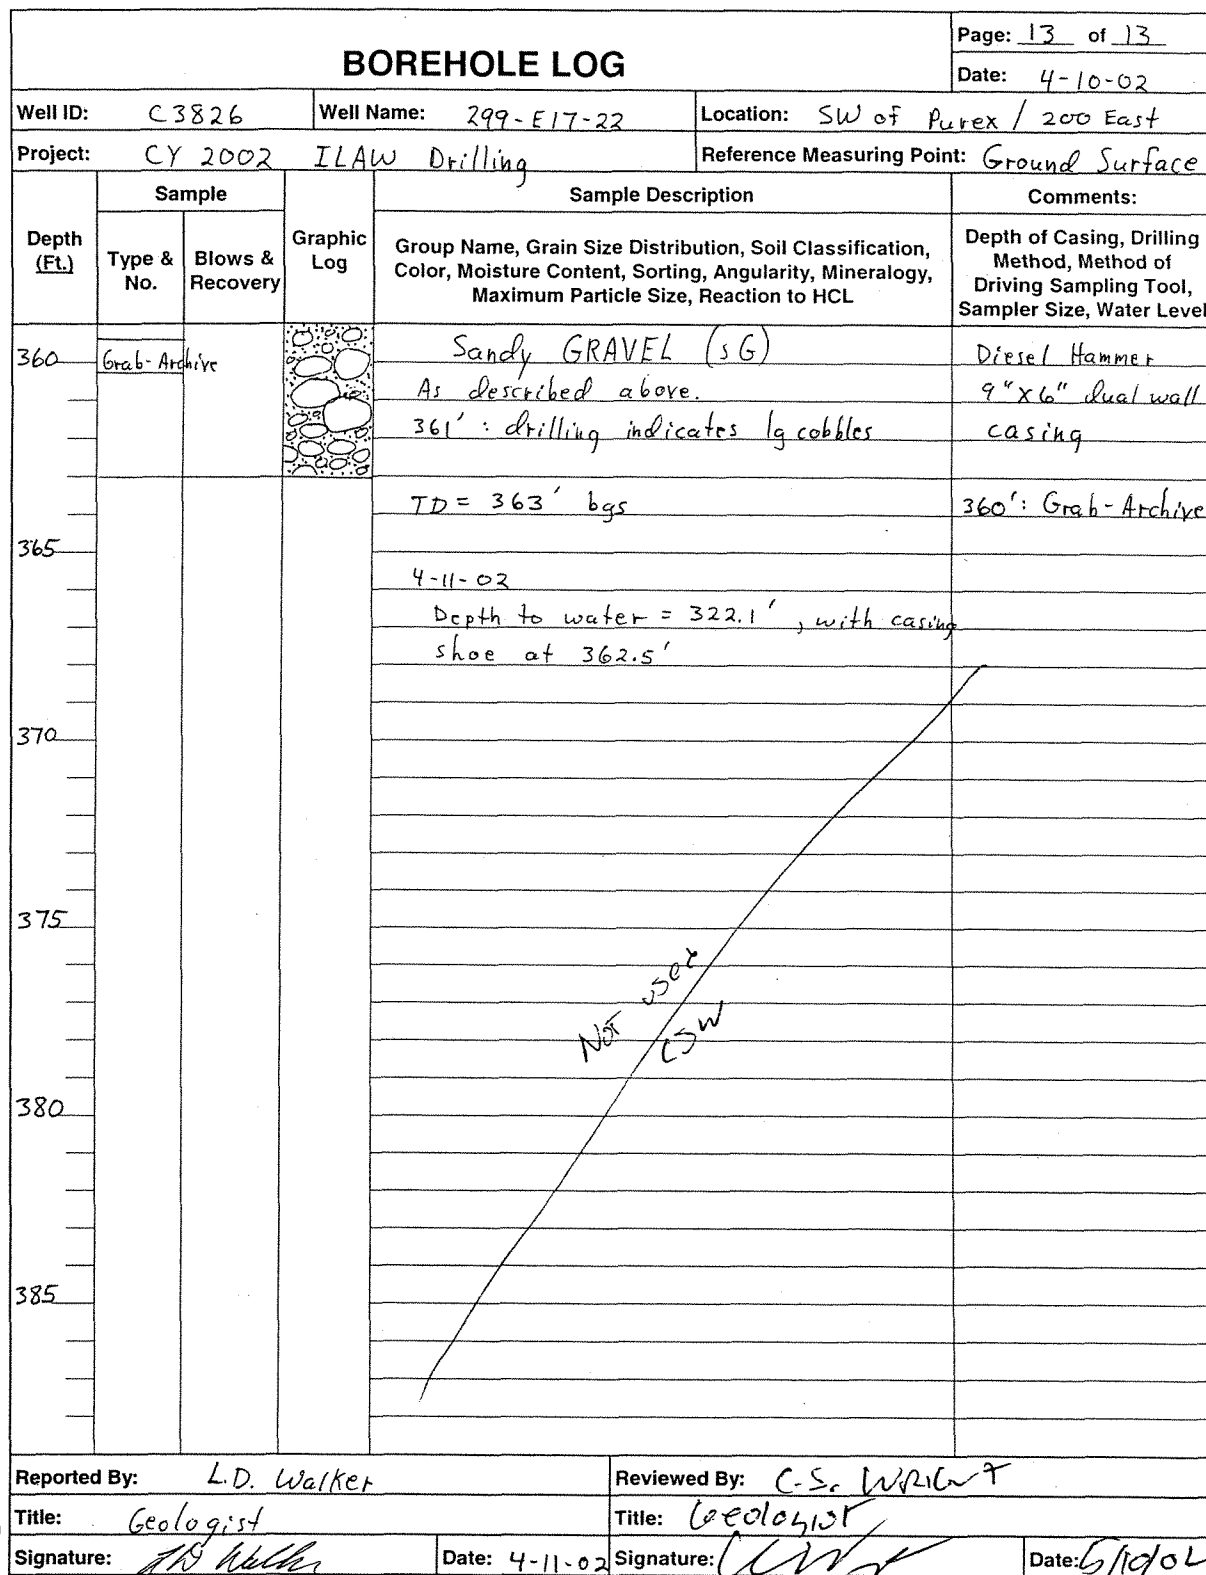 BOREHOLE LOG
Page: 13 of 13
Date: 4-10-02
Well ID: C3826 Well Name: 299-E17-22 Location: SW of Purex / 200 East
Project: CY 2002 ILAW Drilling Reference Measuring Point: Ground Surface
Depth (Ft.)
Sample
Type & No.
Blows & Recovery
Graphic Log
Sample Description
Group Name, Grain Size Distribution, Soil Classification,
Color, Moisture Content, Sorting, Angularity, Mineralogy,
Maximum Particle Size, Reaction to HCL
Comments:
Depth of Casing, Drilling
Method, Method of
Driving Sampling Tool,
Sampler Size, Water Level
360 Grab-Archive Sandy GRAVEL (sG) Diesel Hammer
As described above. 9"x6" dual wall
361' : drilling indicates lg cobbles casing
TD = 363' bgs 360': Grab-Archive
365
4-11-02
Depth to water = 322.1', with casing
shoe at 362.5'
370
375
Not used
CSW
380
385
Reported By: L.D. Walker Reviewed By: C.S. WRIGHT
Title: Geologist Title: Geologist
Signature: LD Walker Date: 4-11-02 Signature: Date: 5/10/02